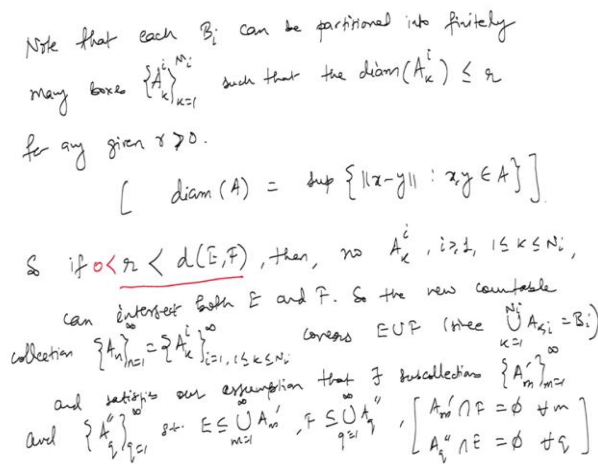 Note that each B_i can be partitional into finitely
many boxes {A_k^i}_{k=1}^{N_i} such that the diam(A_k^i) ≤ r
for any given r>0.
[ diam(A) = sup {||x-y|| : x,y ∈ A} ]
So if 0< r < d(E,F), then, no A_k^i, i≥1, 1≤k≤N_i,
can intersect both E and F. So the new countable
collection {A_n}_{n=1}^∞ = {A_k^i}_{i=1, 1≤k≤N_i}^∞ covers E∪F (since ∪_{k=1}^{N_i} A_{k,i} = B_i)
and satisfies our assumption that ∃ subcollections {A_m'}_{m=1}^∞
and {A_q''}_{q=1}^∞ s.t. E ⊆ ∪_{m=1}^∞ A_m', F ⊆ ∪_{q=1}^∞ A_q'', [ A_m' ∩ F = ∅ ∀m
A_q'' ∩ E = ∅ ∀q ]